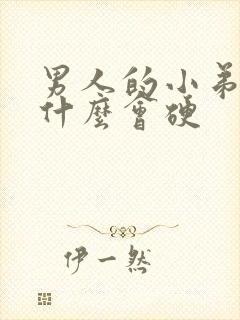 男人的小弟
什麼會硬
伊一然